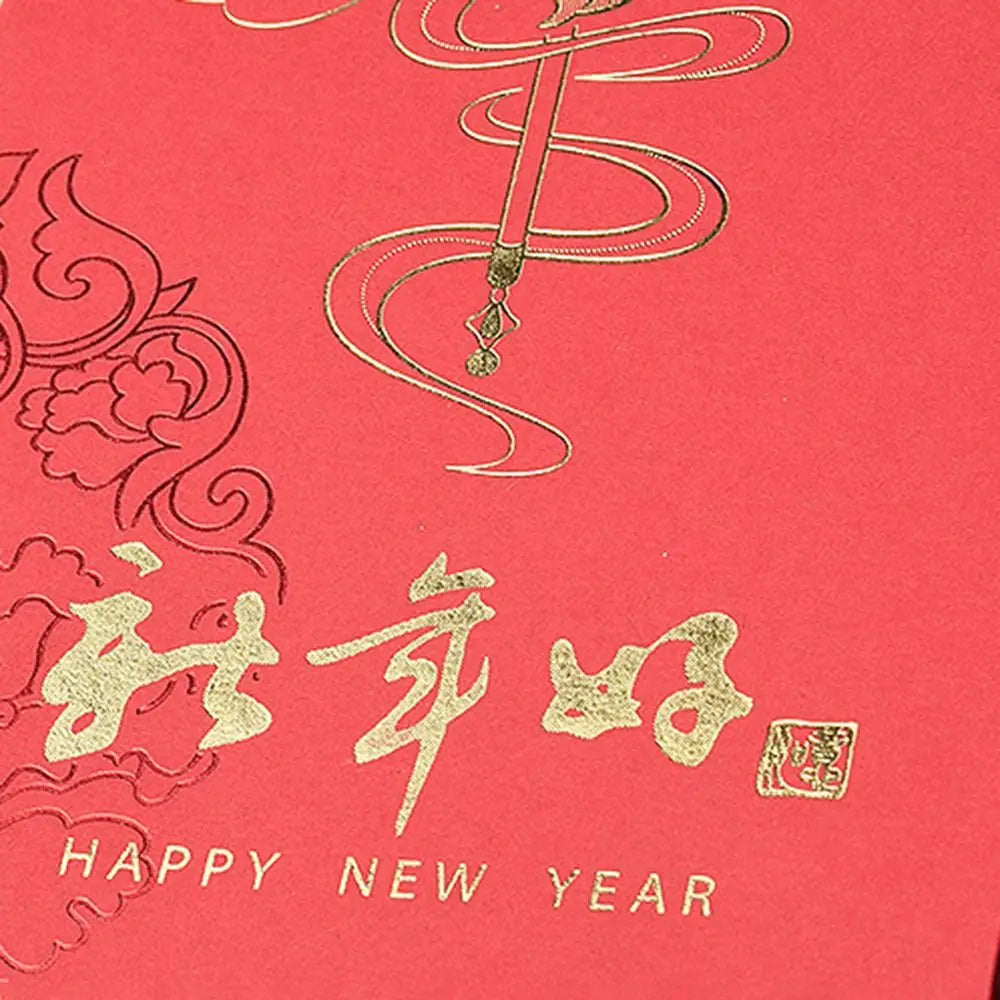 新年好
HAPPY NEW YEAR